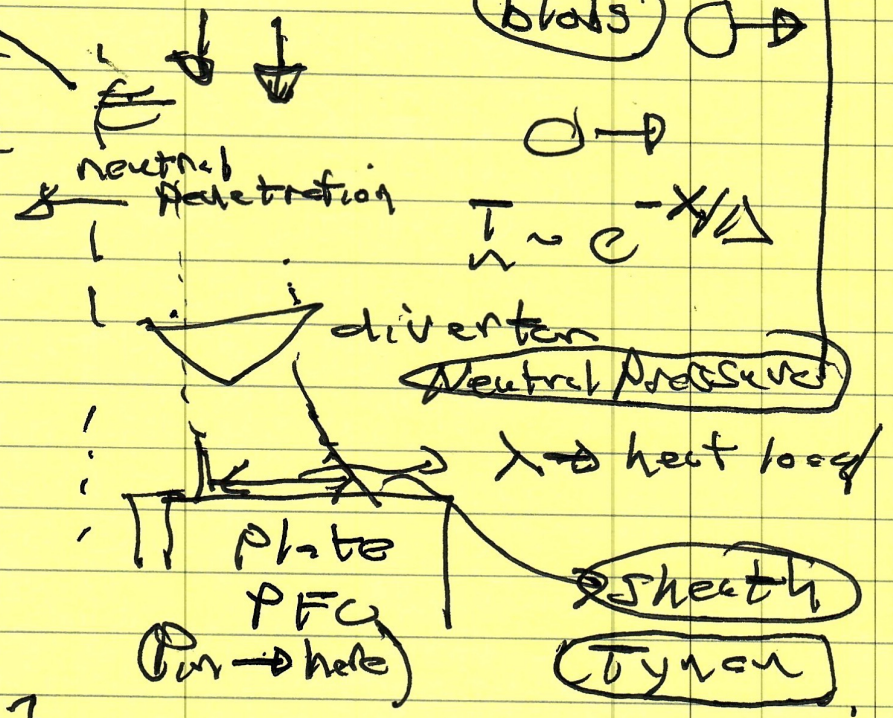 blobs
neutral
penetration
T/n ~ e^-x/Δ
divertor
Neutral Pressure
λ → heat load
Plate
PFC
sheath
(Pin → here)
Tynan